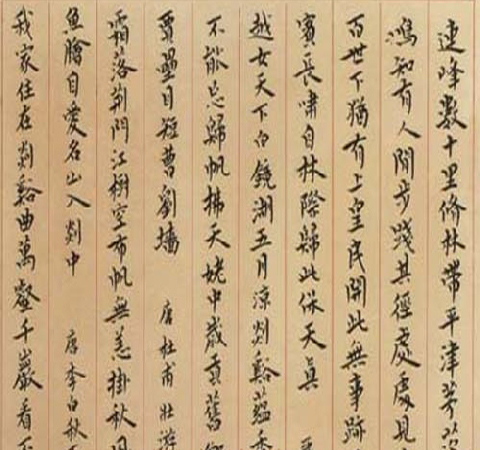 連峰數十里脩林帶平津茅茨
鳴知有人閒步踐其徑處處見
百世下猶有上皇民開此無事跡
賓長嘯自林際歸此保天真
越女天下白鏡湖五月涼剡谿蘊秀
不能忘歸帆拂天姥中歲貢舊鄉
賈壘目短曹劉墻 唐杜甫 壯遊
霜落荆門江樹空布帆無恙掛秋風
魚鱠自愛名山入剡中 唐李白秋下
我家住在剡谿曲萬壑千巖看不